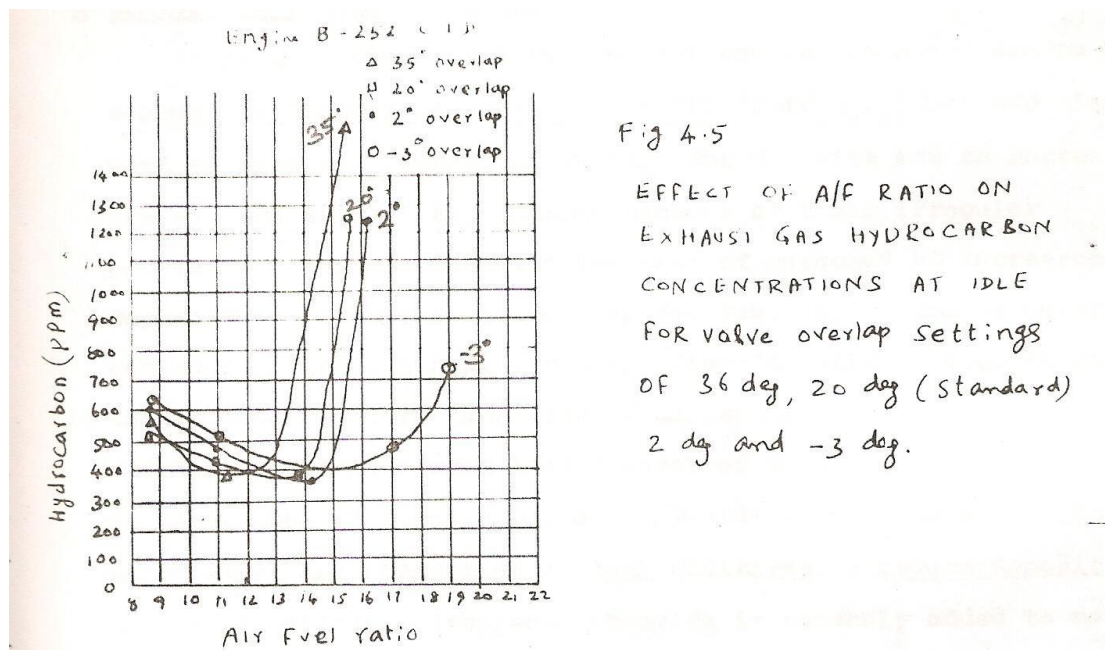 Engine B - 252
△ 35° overlap
20° overlap
• 2° overlap
o -3° overlap
35°
20°
2°
-3°
1400
1300
1200
1000
900
800
700
600
500
400
300
200
100
0
8 9 10 11 12 13 14 15 16 17 18 19 20 21 22
Hydrocarbon (PPm)
Air Fuel ratio
Fig 4.5
EFFECT OF A/F RATIO ON
EXHAUST GAS HYDROCARBON
CONCENTRATIONS AT IDLE
FOR valve overlap settings
OF 36 deg, 20 deg (Standard)
2 deg and -3 deg.